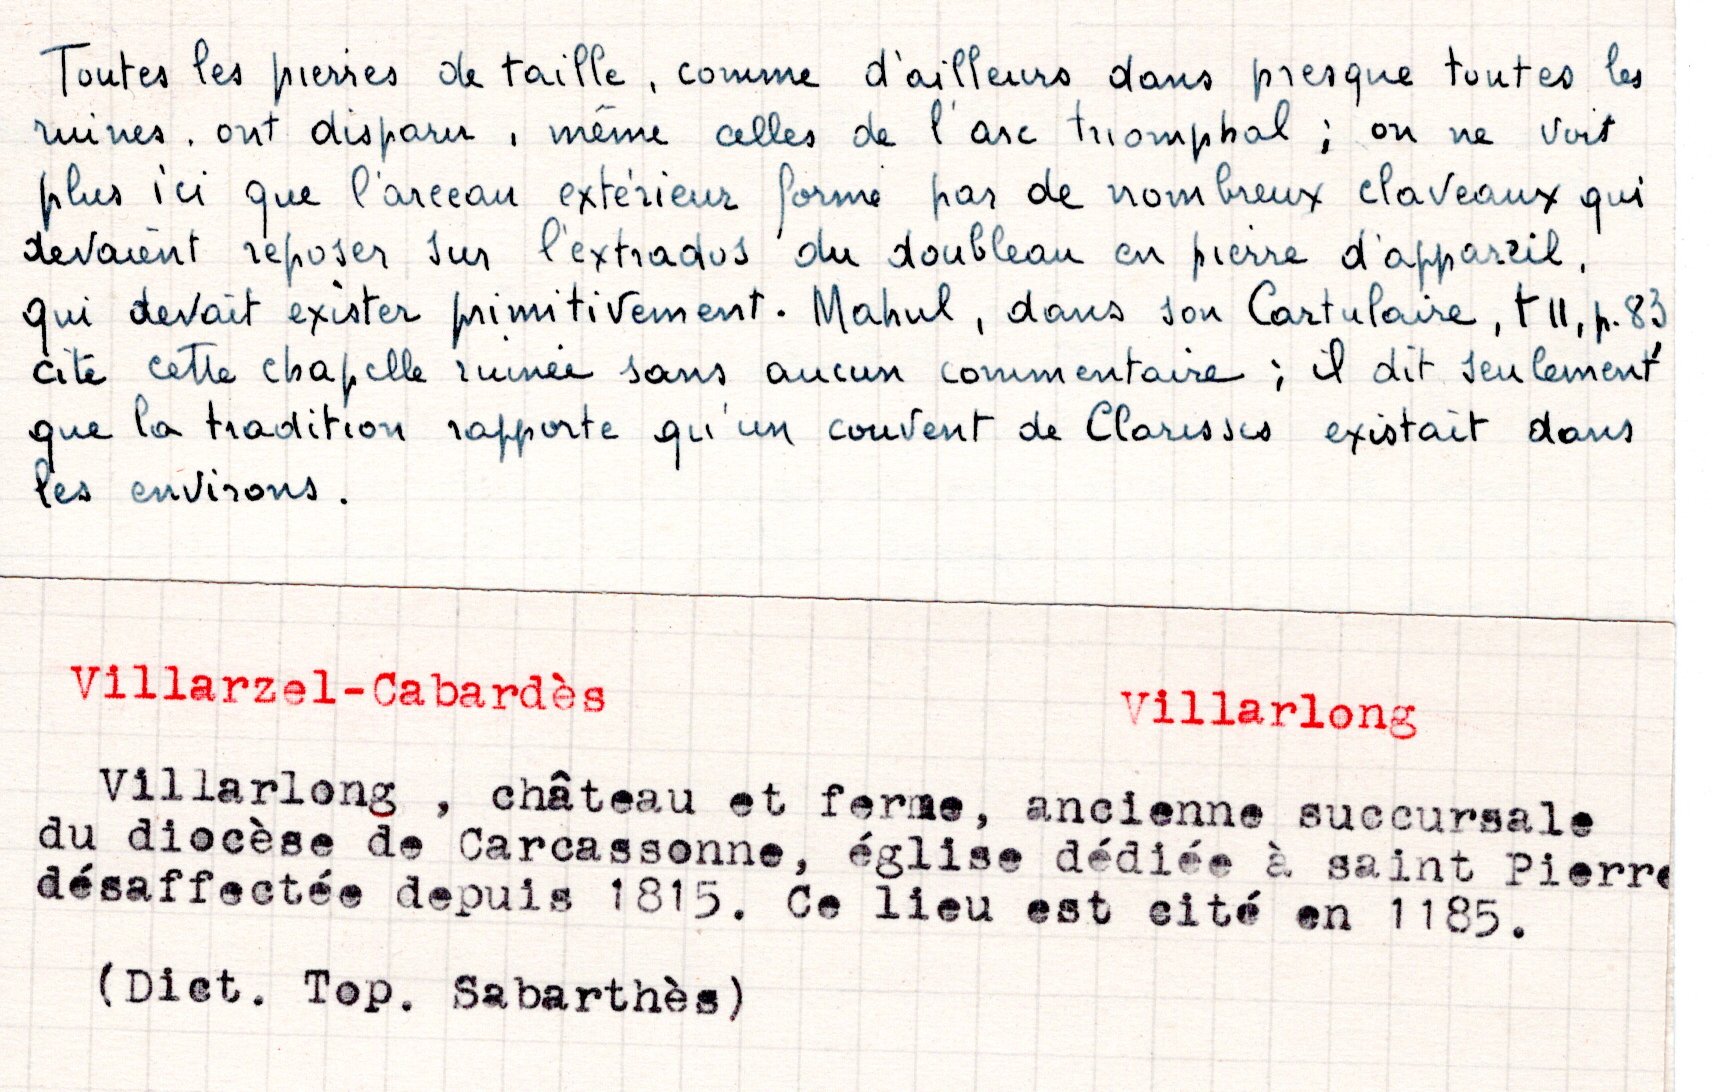 Toutes les pierres de taille, comme d'ailleurs dans presque toutes les
ruines, ont disparu, même celles de l'arc triomphal ; on ne voit
plus ici que l'arceau extérieur formé par de nombreux claveaux qui
devaient reposer sur l'extrados du doubleau en pierre d'appareil,
qui devait exister primitivement. Mahul, dans son Cartulaire, t II, p. 83,
cite cette chapelle ruinée sans aucun commentaire ; il dit seulement
que la tradition rapporte qu'un couvent de Clarisses existait dans
les environs.
Villarzel-Cabardès Villarlong
Villarlong , château et ferme, ancienne succursale
du diocèse de Carcassonne, église dédiée à saint Pierre
désaffectée depuis 1815. Ce lieu est cité en 1185.
(Dict. Top. Sabarthès)